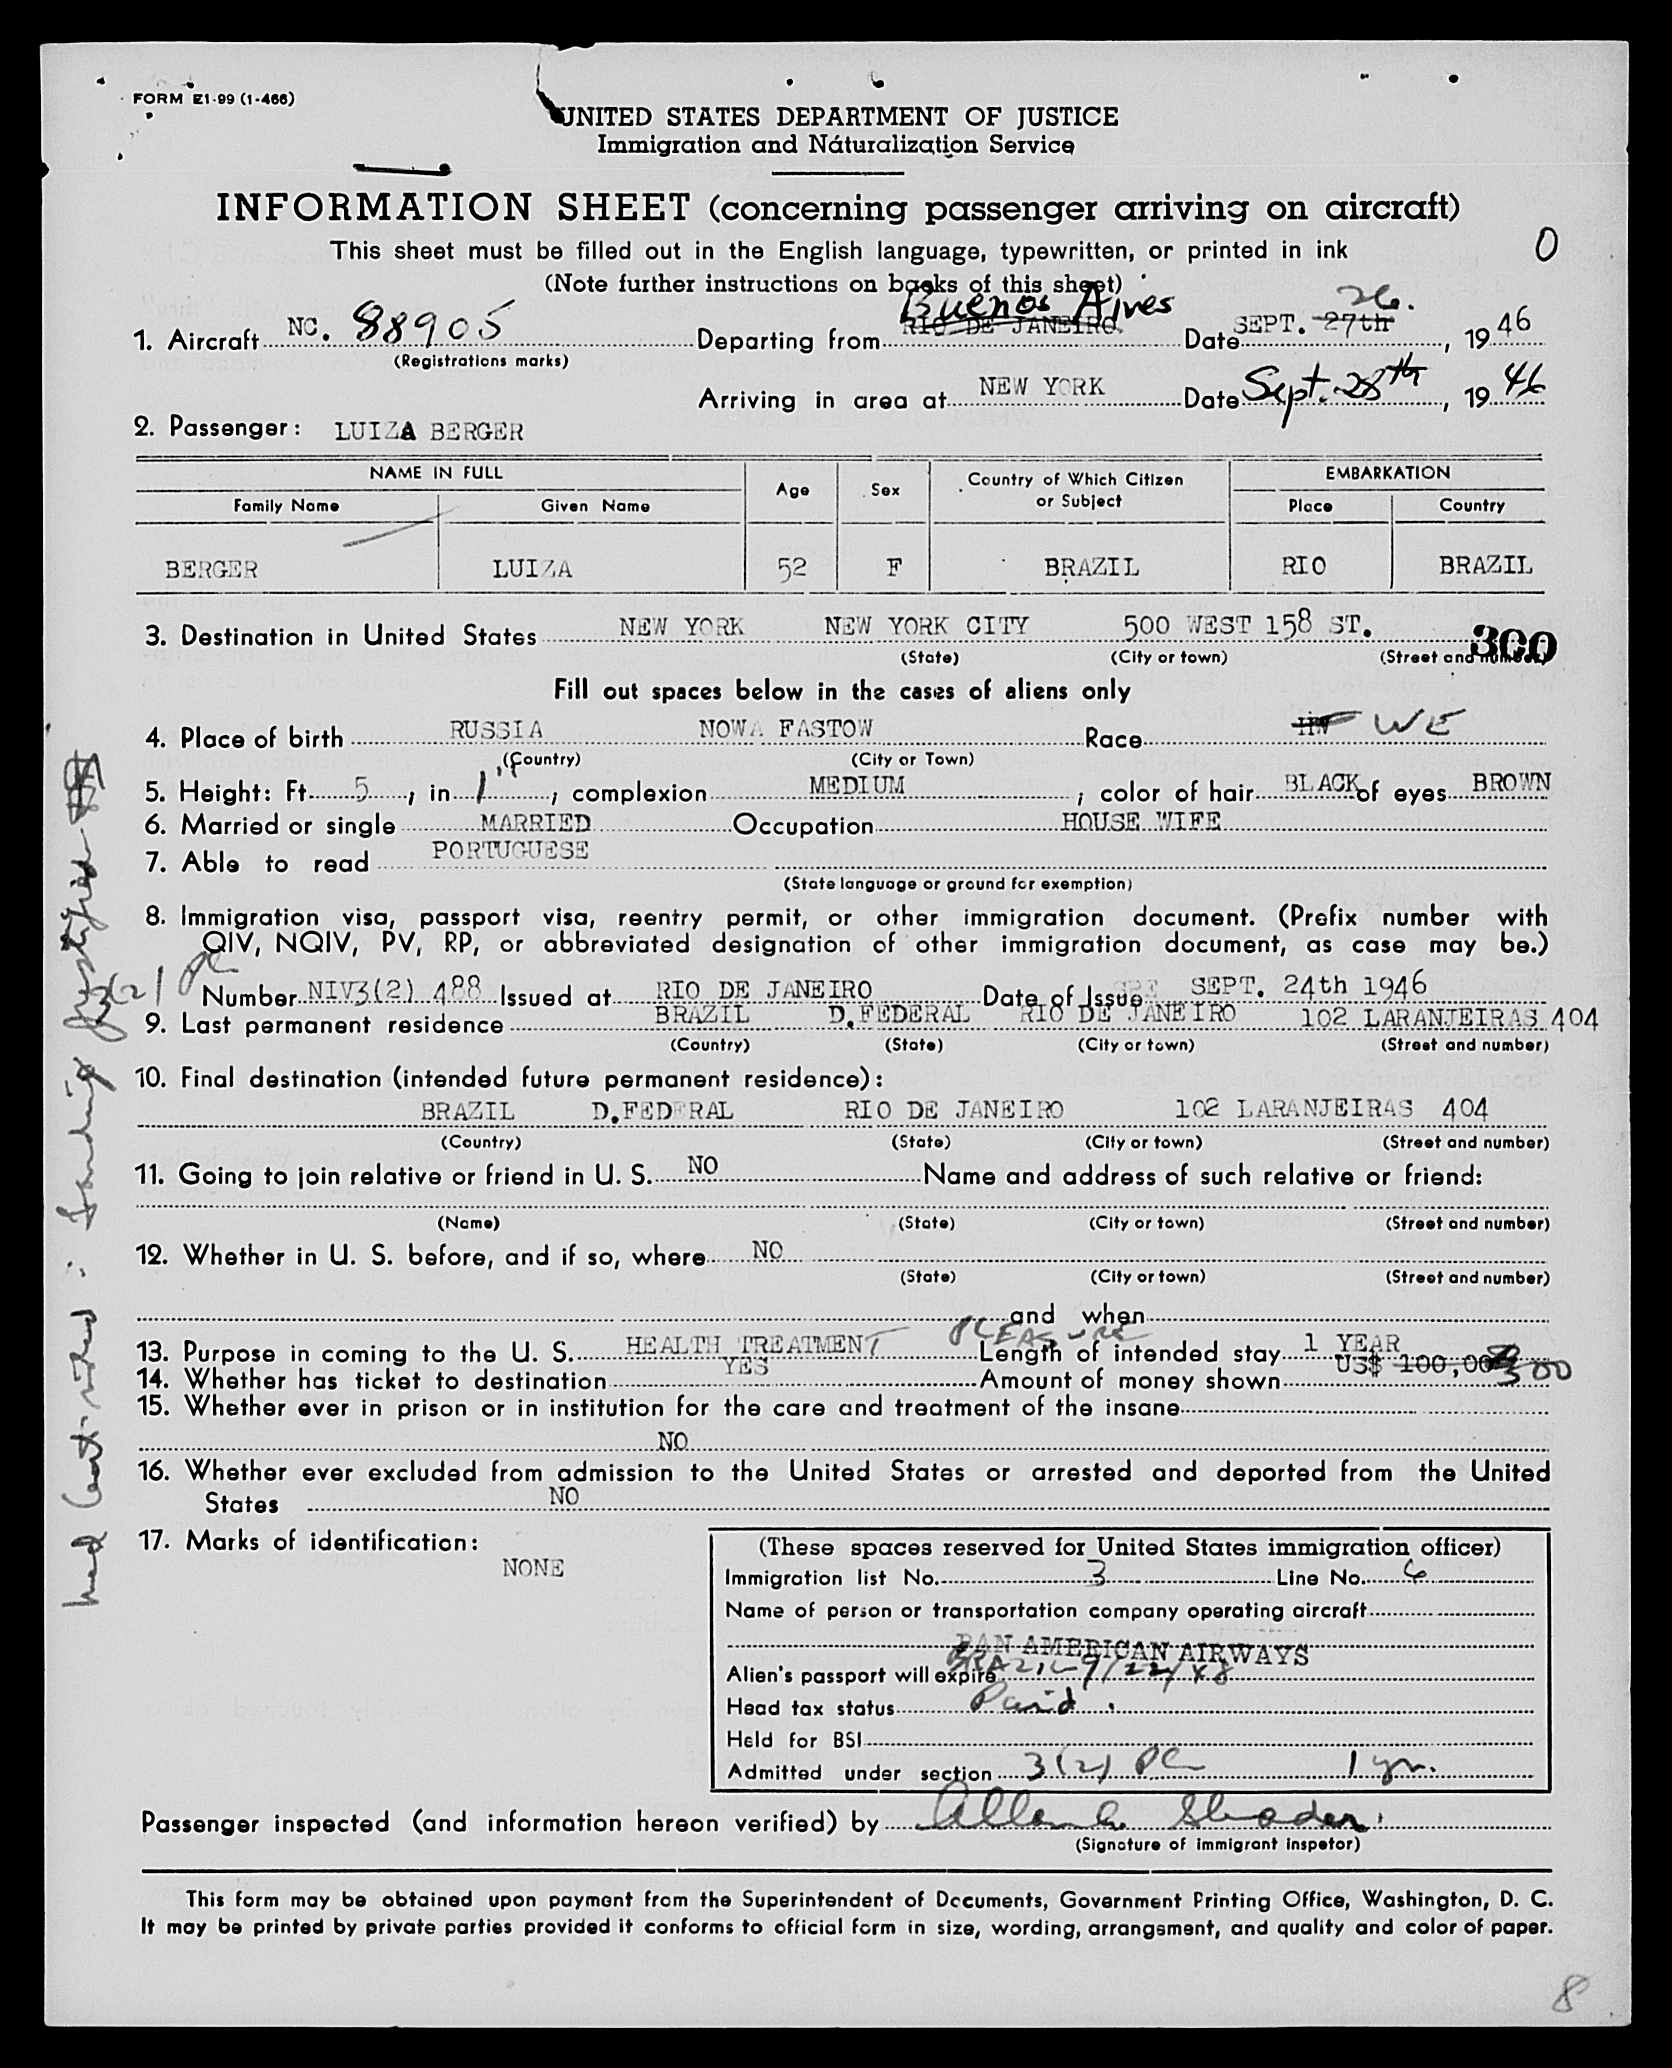 FORM E1-99 (1-466)
UNITED STATES DEPARTMENT OF JUSTICE
Immigration and Naturalization Service
INFORMATION SHEET (concerning passenger arriving on aircraft)
This sheet must be filled out in the English language, typewritten, or printed in ink
0
(Note further instructions on backs of this sheet)
Buenos Aires 26.
1. Aircraft NC. 88905 Departing from RIO DE JANEIRO. Date SEPT. 27th, 1946
(Registrations marks)
Arriving in area at NEW YORK Date Sept. 28th, 1946
2. Passenger: LUIZA BERGER
NAME IN FULL Age Sex Country of Which Citizen or Subject EMBARKATION
Family Name Given Name Place Country
BERGER LUIZA 52 F BRAZIL RIO BRAZIL
3. Destination in United States NEW YORK NEW YORK CITY 500 WEST 158 ST. 300
(State) (City or town) (Street and number)
Fill out spaces below in the cases of aliens only
4. Place of birth RUSSIA NOWA FASTOW Race WE
(Country) (City or Town)
5. Height: Ft. 5, in. 1", complexion MEDIUM; color of hair BLACK of eyes BROWN
6. Married or single MARRIED Occupation HOUSE WIFE
7. Able to read PORTUGUESE
(State language or ground for exemption)
8. Immigration visa, passport visa, reentry permit, or other immigration document. (Prefix number with
QIV, NQIV, PV, RP, or abbreviated designation of other immigration document, as case may be.)
3(2) PC
Number NIV3(2) 488 Issued at RIO DE JANEIRO Date of Issue SEPT. 24th 1946
9. Last permanent residence BRAZIL D.FEDERAL RIO DE JANEIRO 102 LARANJEIRAS 404
(Country) (State) (City or town) (Street and number)
10. Final destination (intended future permanent residence):
BRAZIL D.FEDERAL RIO DE JANEIRO 102 LARANJEIRAS 404
(Country) (State) (City or town) (Street and number)
11. Going to join relative or friend in U. S. NO Name and address of such relative or friend:
(Name) (State) (City or town) (Street and number)
12. Whether in U. S. before, and if so, where NO
(State) (City or town) (Street and number)
and when
PLEASURE
13. Purpose in coming to the U. S. HEALTH TREATMENT Length of intended stay 1 YEAR
14. Whether has ticket to destination YES Amount of money shown US$ 100,00 300
15. Whether ever in prison or in institution for the care and treatment of the insane
NO
16. Whether ever excluded from admission to the United States or arrested and deported from the United
States NO
17. Marks of identification:
NONE
(These spaces reserved for United States immigration officer)
Immigration list No. 3 Line No. 6
Name of person or transportation company operating aircraft
PAN AMERICAN AIRWAYS
Alien's passport will expire BRAZIL 9/22/48
Head tax status Paid.
Held for BSI
Admitted under section 3(2) PC 1 yr.
Passenger inspected (and information hereon verified) by
(Signature of immigrant inspetor)
This form may be obtained upon payment from the Superintendent of Documents, Government Printing Office, Washington, D. C.
It may be printed by private parties provided it conforms to official form in size, wording, arrangement, and quality and color of paper.
8
Med Cert. : Landing